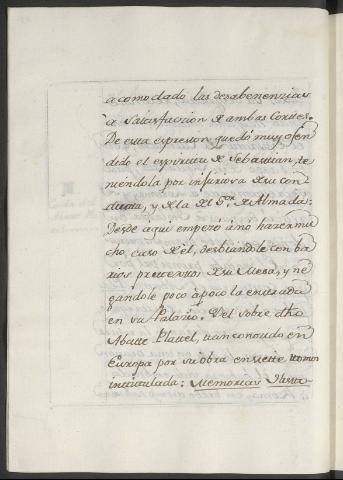 acomodado las desabenenzias
a satisfaczion de ambas Cortes.
De esta expresion quedó muy ofen
dido el espiritu de Sebastian, te
niendola por injuriosa de su con
ducta, y de la del S.or de Almada:
Desde aqui empezó á no hazer mu
cho, caso de él, desbiandole con ba
rios pretextos de su Mesa, y ne
gandole poco à poco la entrada
en su Palazio. Del sobre dho
Abatte Plattel, tan conozido en
Europa por su obra en siette tomos
intitulada: Memorias Histo-